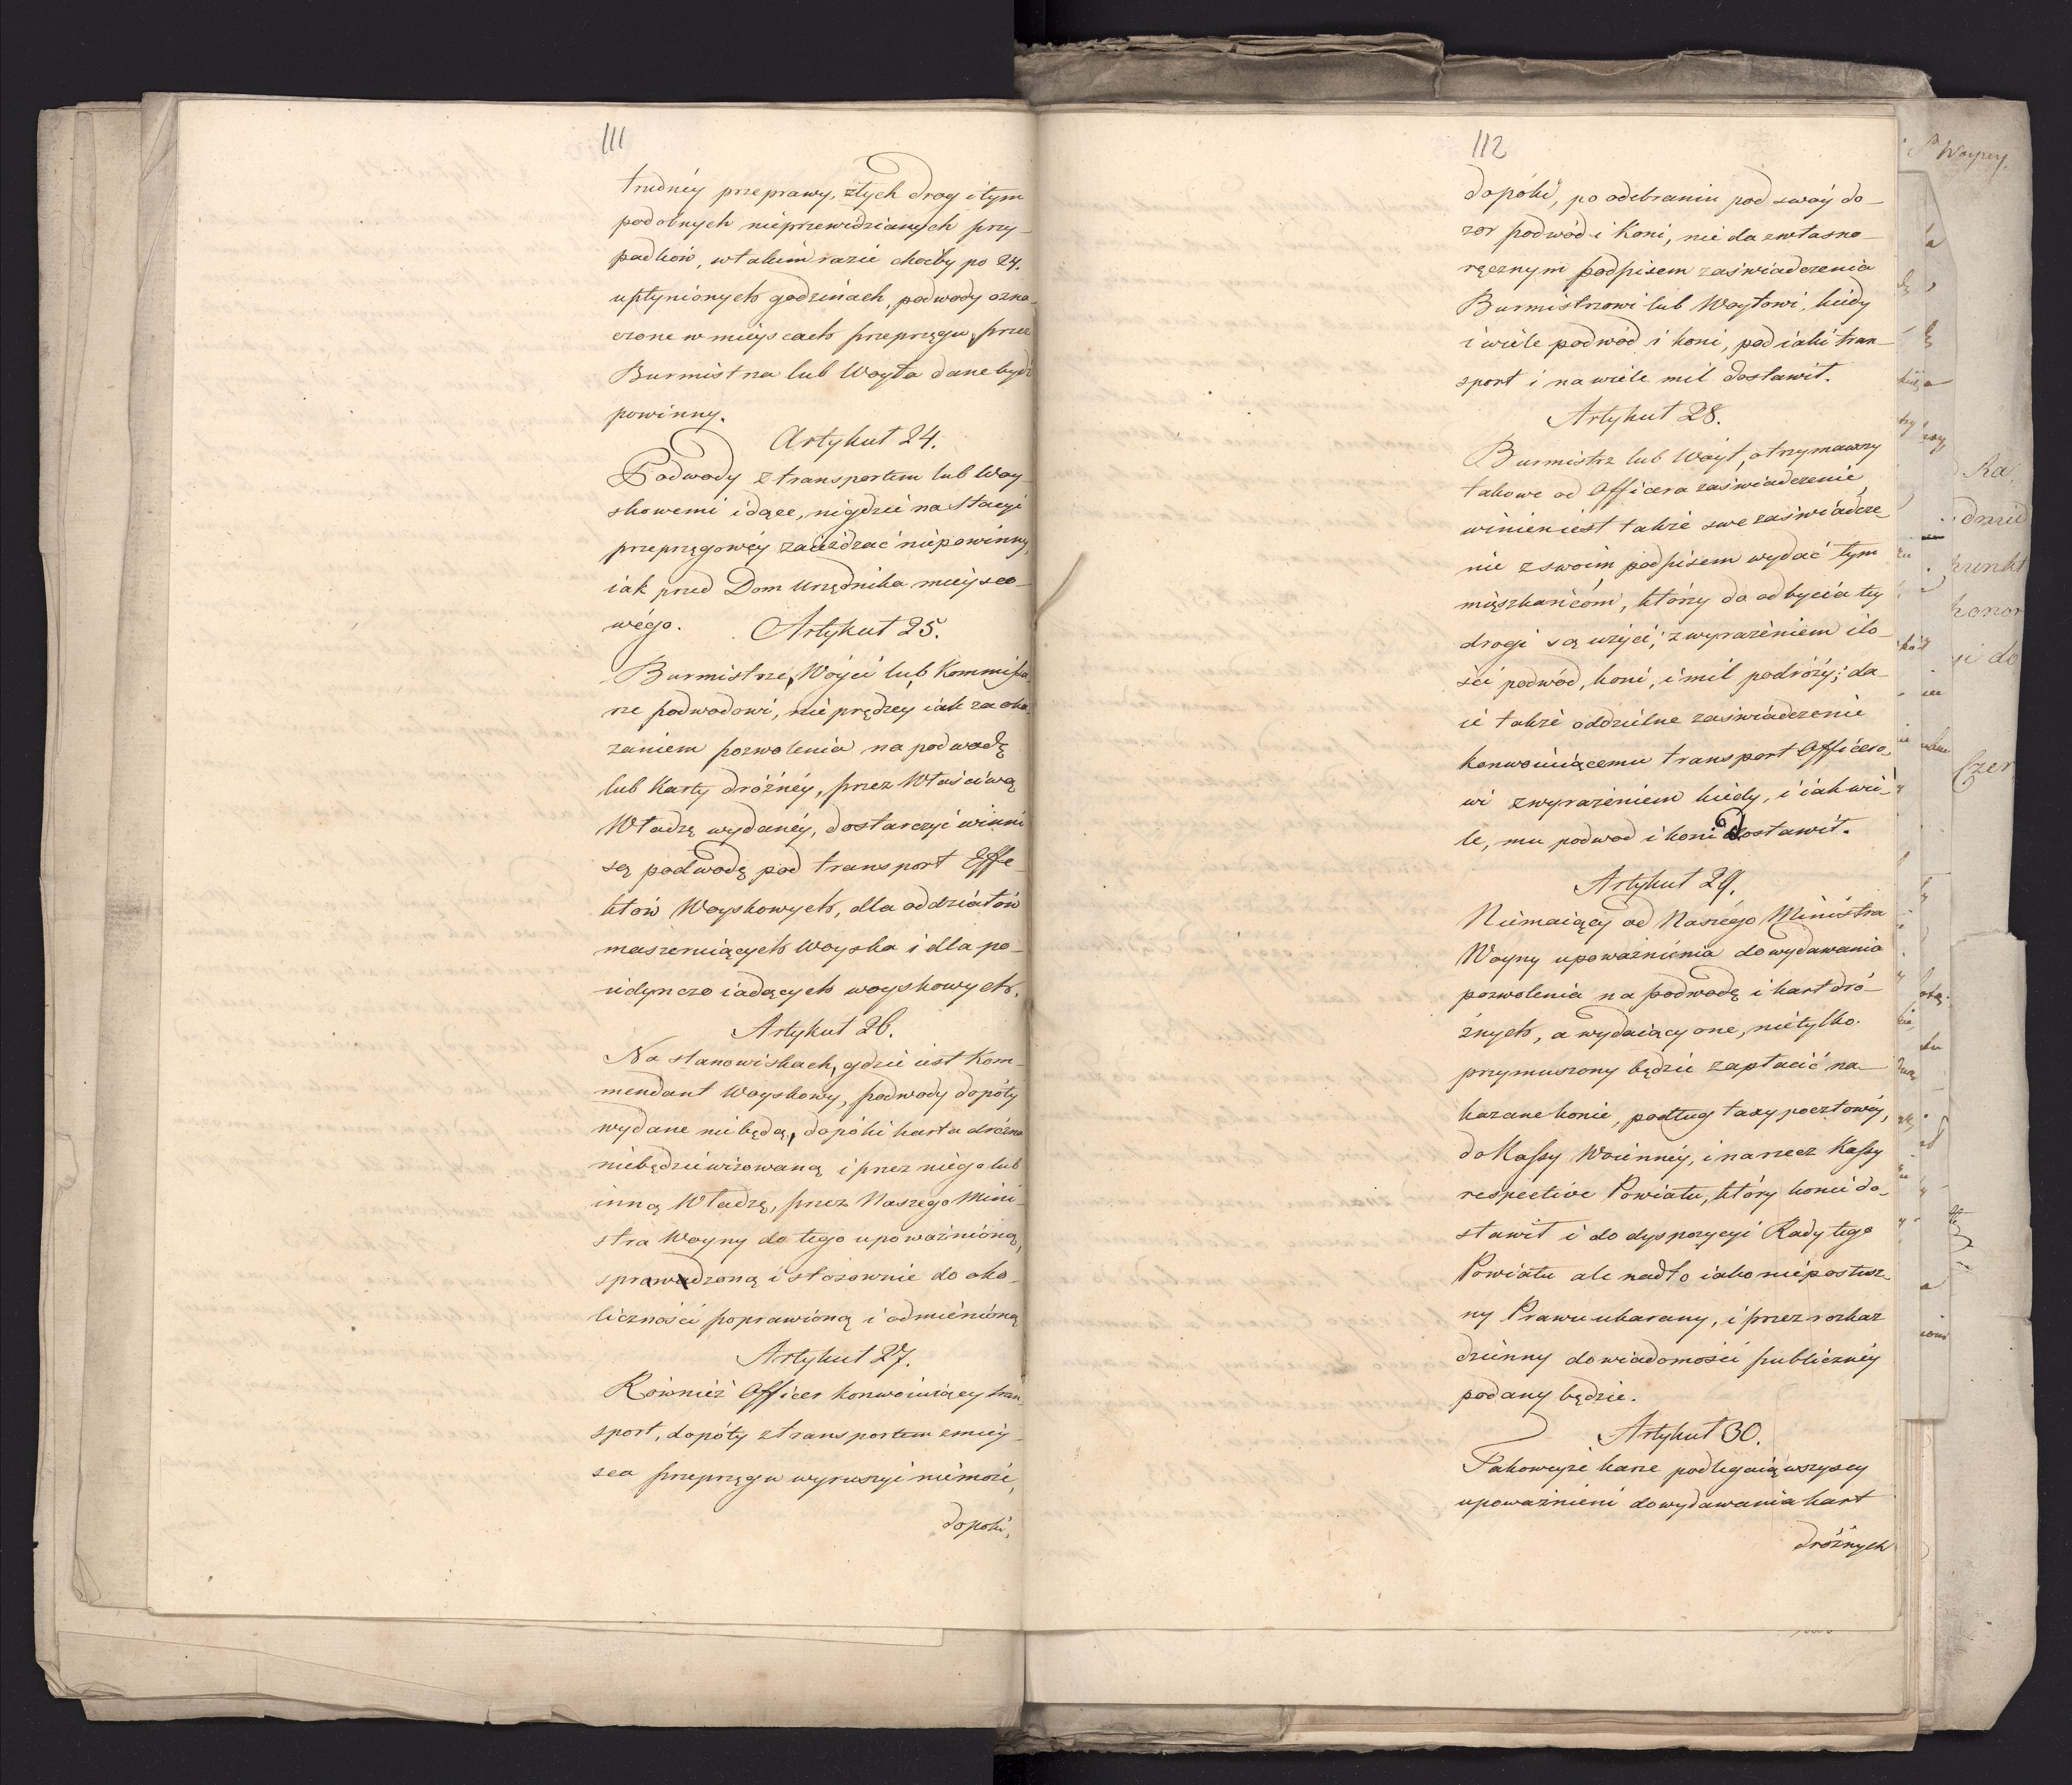 111
trudnéy przeprawy, złych drog i tym
podobnych nieprzewidzianych przy-
padków, w takim razie choćby po 24.
upłynionych godzinach, podwody ozna-
czone w mieyscach przeprzęgu, przez
Burmistrza lub Woyta dane bydź
powinny.
Artykuł 24.
Podwody z transportem lub Woy-
skowemi idące, nigdzie na Stacyi
przeprzęgowéy zaieżdzać niepowinny,
iak przed Dom Urzędnika mieysco-
wégo.
Artykuł 25.
Burmistrze, Wóyci lub Kommissa-
rze podwodowi, nie prędzey iak za oka-
zaniem pozwolenia na podwodę
lub Karty dróżnéy, przez Właściwą
Władzę wydanéy, dostarczyć winni
są podwodę pod transport Effe-
któw Woyskowych, dla oddziałów
maszeruiących Woyska i dla po-
iedynczo iadących woyskowych.
Artykuł 26.
Na stanowiskach, gdzie iest Kom-
mendant Woyskowy, podwody dopóty
wydane niebędą, dopóki karta dróżna
niebędzie wizowaną i przez niego lub
inną Władzę, przez Naszego Mini-
stra Woyny do tego upoważnioną,
sprawdzoną i stosownie do oko-
liczności poprawioną i odmienioną
Artykuł 27.
Również Officer konwoiuiący tran-
sport, dopóty z transportem z miey-
sca przeprzęgu wyruszyć niemoże,
dopoki,
112
dopóki, po odebraniu pod swóy do-
zor podwód i Koni, nie da zwłasno-
ręcznym podpisem zaświadczenia
Burmistrzowi lub Woytowi, kiedy
i wiele podwód i koni, pod iaki tran-
sport i na wiele mil dostawił.
Artykuł 28.
Burmistrz lub Wóyt, otrzymawszy
takowe od Officera zaświadczenie,
winien iest także swe zaświadcze-
nie z swoim podpisem wydać tym
mięszkańcom, którzy do odbycia téy
drogi są użyci, z wyrażeniem ilo-
ści podwód, koni, i mil podróży; da-
ie także oddzielne zaświadczenie
konwoiuiącemu transport Officero-
wi z wyrażeniem kiedy, i iak wie-
le, mu podwod i koni dostawił.
Artykuł 29.
Niemaiący od Naszégo Ministra
Woyny upoważnienia do wydawania
pozwolenia na podwodę i kart dró-
żnych, a wydaiący one, nietylko
przymuszony będzie zapłacić na-
kazane konie, podług taxy pocztowéy,
do Kassy Woienney, i na rzecz Kassy
respective Powiatu, który konie do-
stawił i do dyspozycyi Rady tego
Powiatu ale nadto iako nieposłusz-
ny Prawu ukarany, i przez rozkaz
dzienny do wiadomości publicznéy
podany będzie.
Artykuł 30.
Takoweyże karze podlegaią wszyscy
upoważnieni do wydawania kart
dróżnych